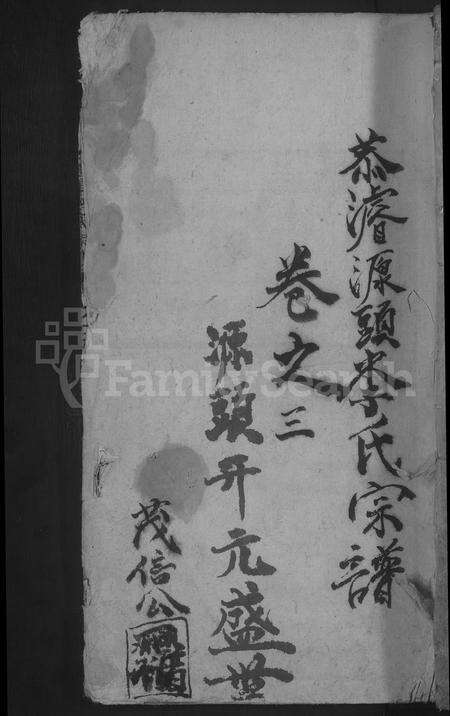 恭濬源頭李氏宗譜
卷之三
源頭開元盛世
茂信公
FamilySearch